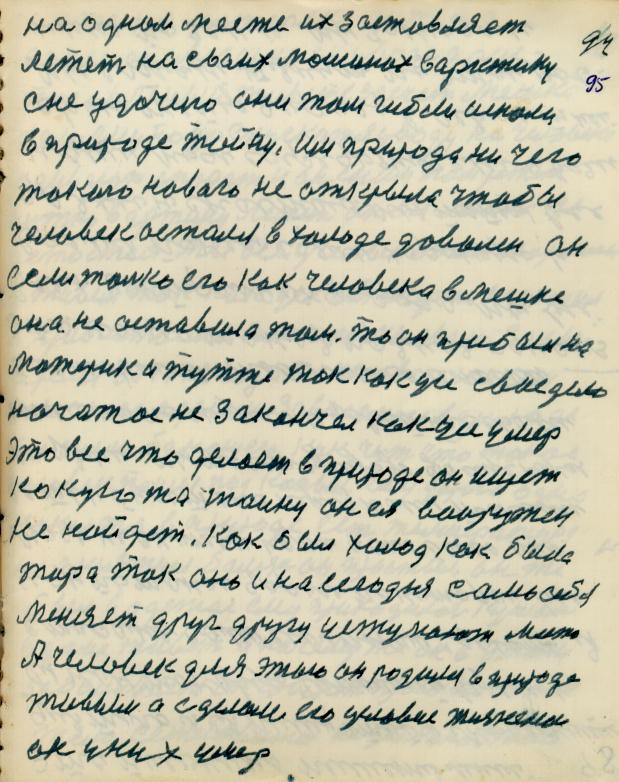 94
95
на одном месте их заставляет
летет на сваих машинах в арктику
с не удочего они там гибли искали
в природе тайну. Им природа ни чего
такого новаго не открыла чтобы
человек осталя в холоде доволен он
если толко его как человека в мешке
она не оставила там. то он прибыл на
материк и тутже так как уи свае дело
начатое не закончел как уи умер
Это все что делает в природе он ищет
какуюта таину он ея вооружен
не найдет. Как был холод как была
жара так онь и на сегодня сама себя
меняет друг другу место
А человек для этого он родиля в природе
живым а сделали его условие жизненая
ок у них умер